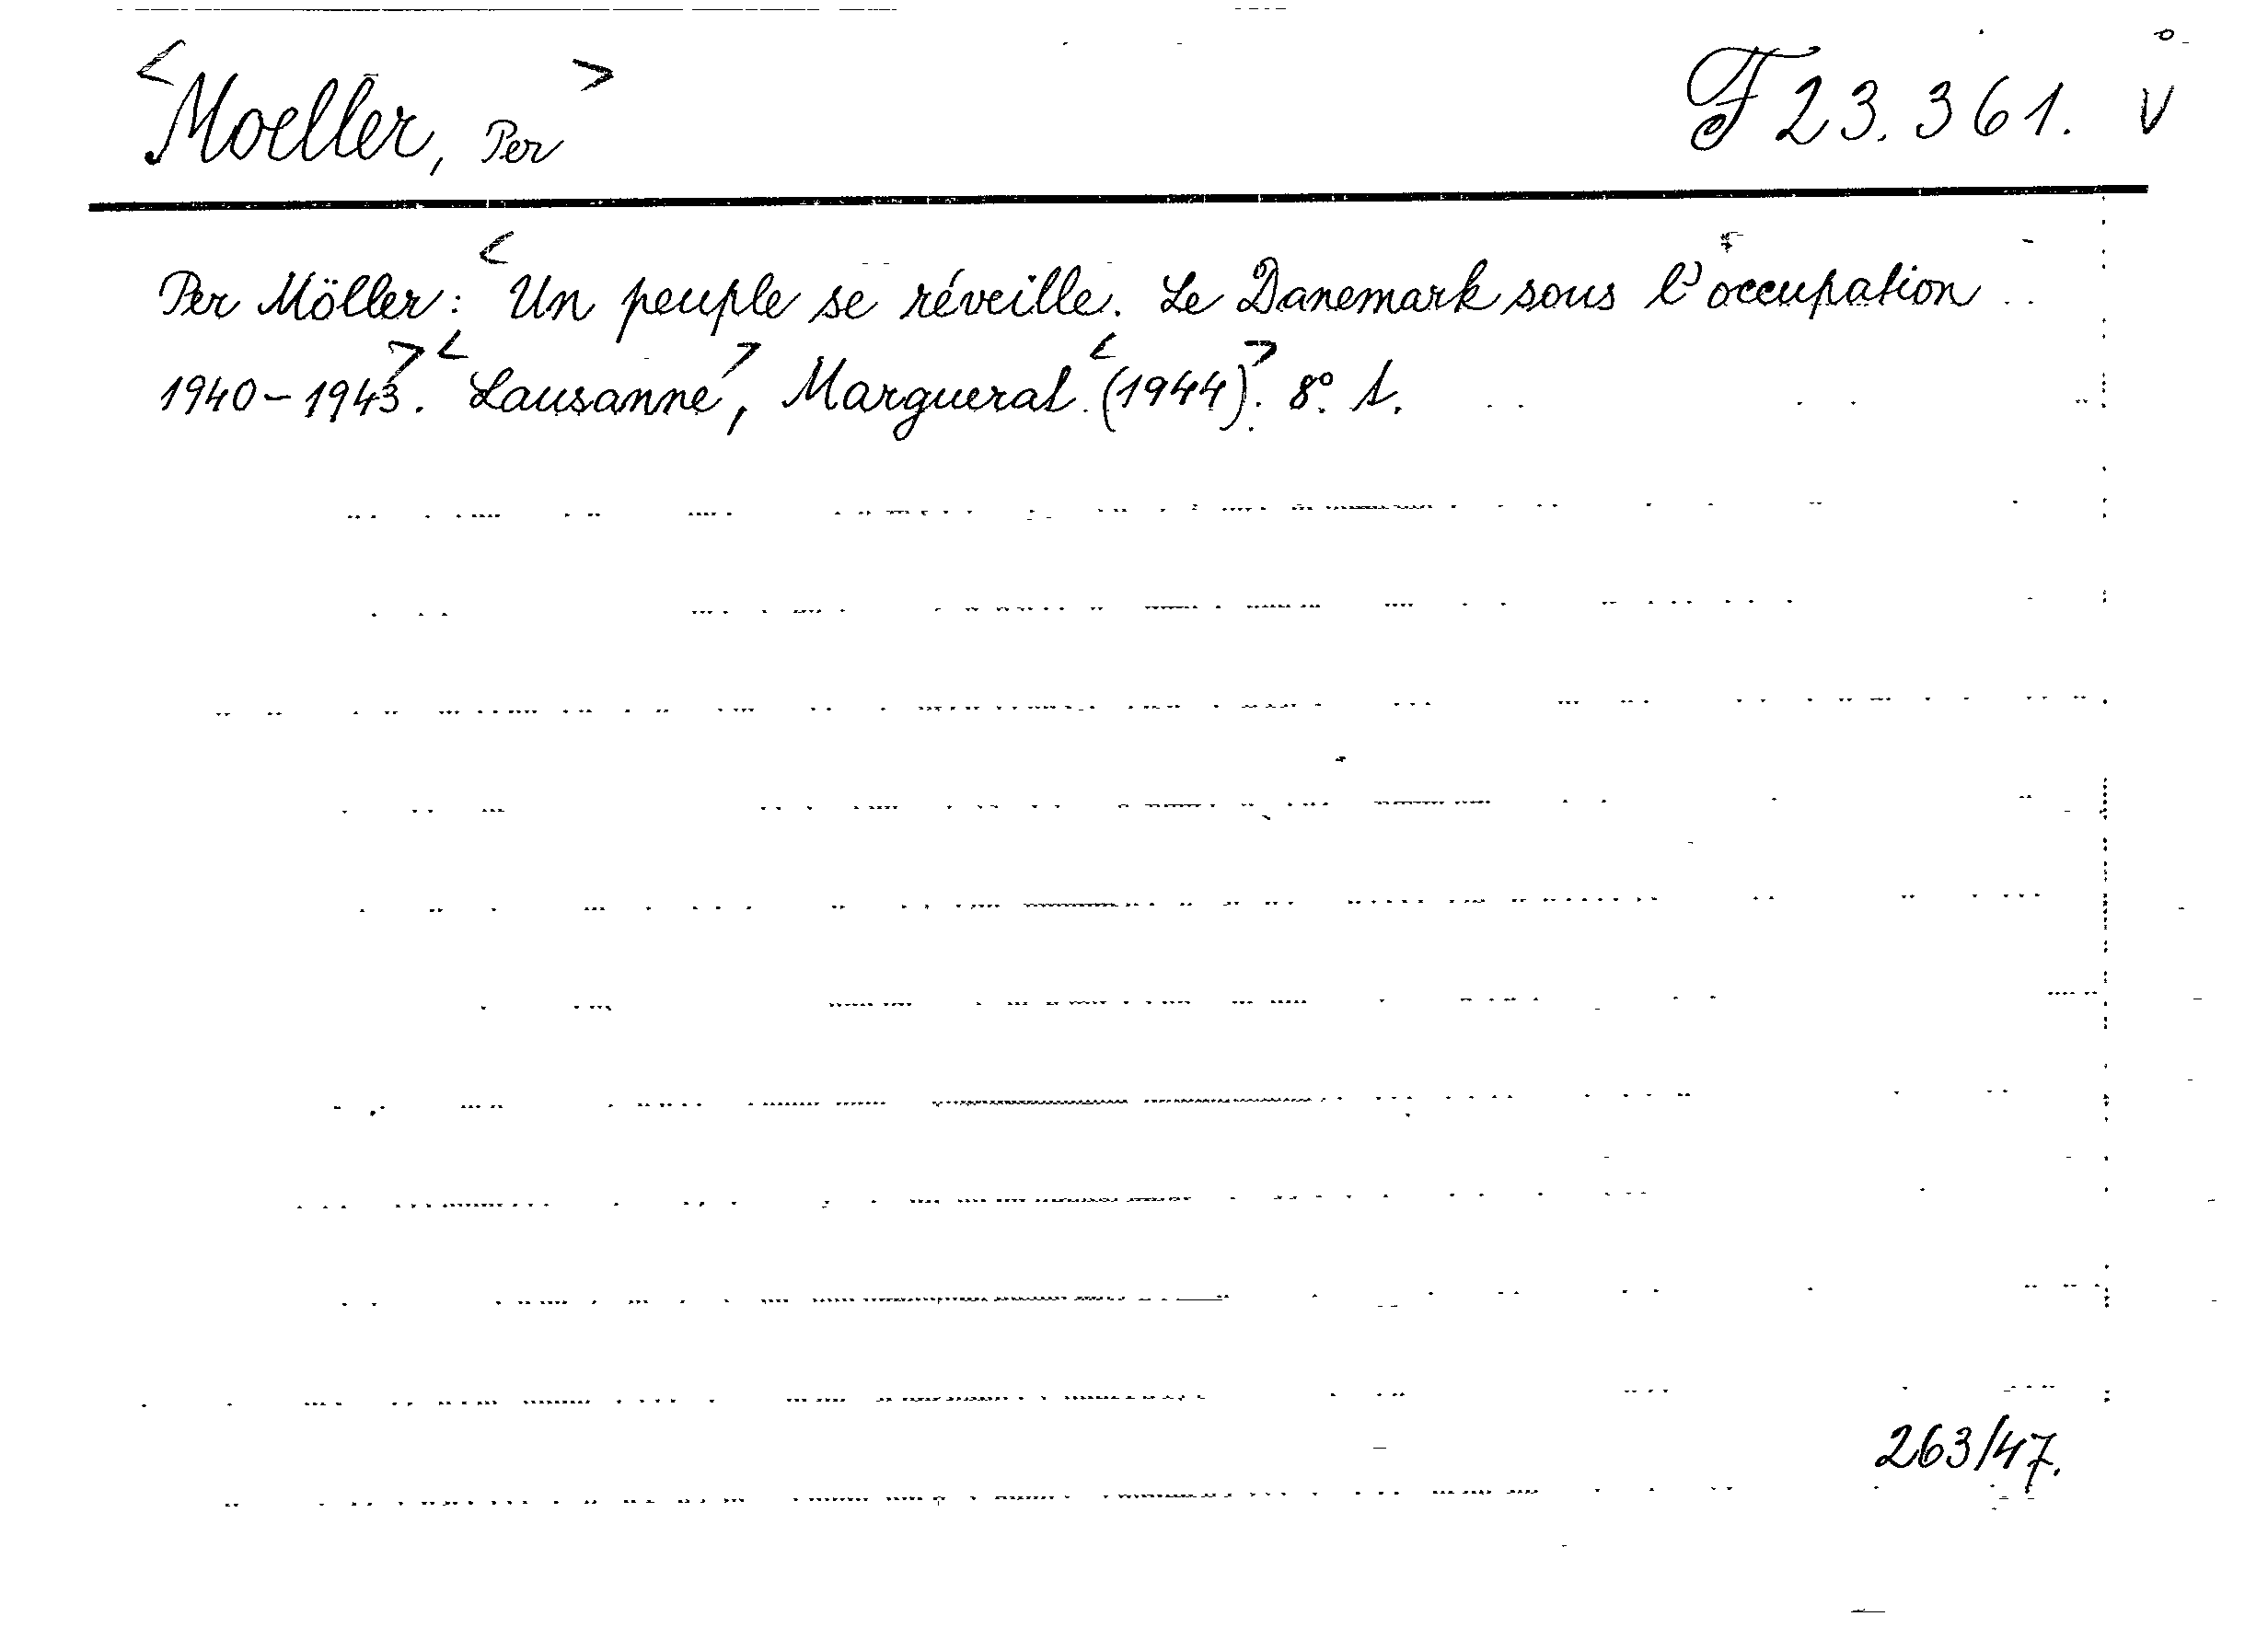 <Moeller, Per> F 23.361. V
Per Möller: <Un peuple se réveille. Le Danemark sous l'occupation
1940-1943>. <Lausanne>, Marguerat <(1944)>. 8°. 1.
263/47.